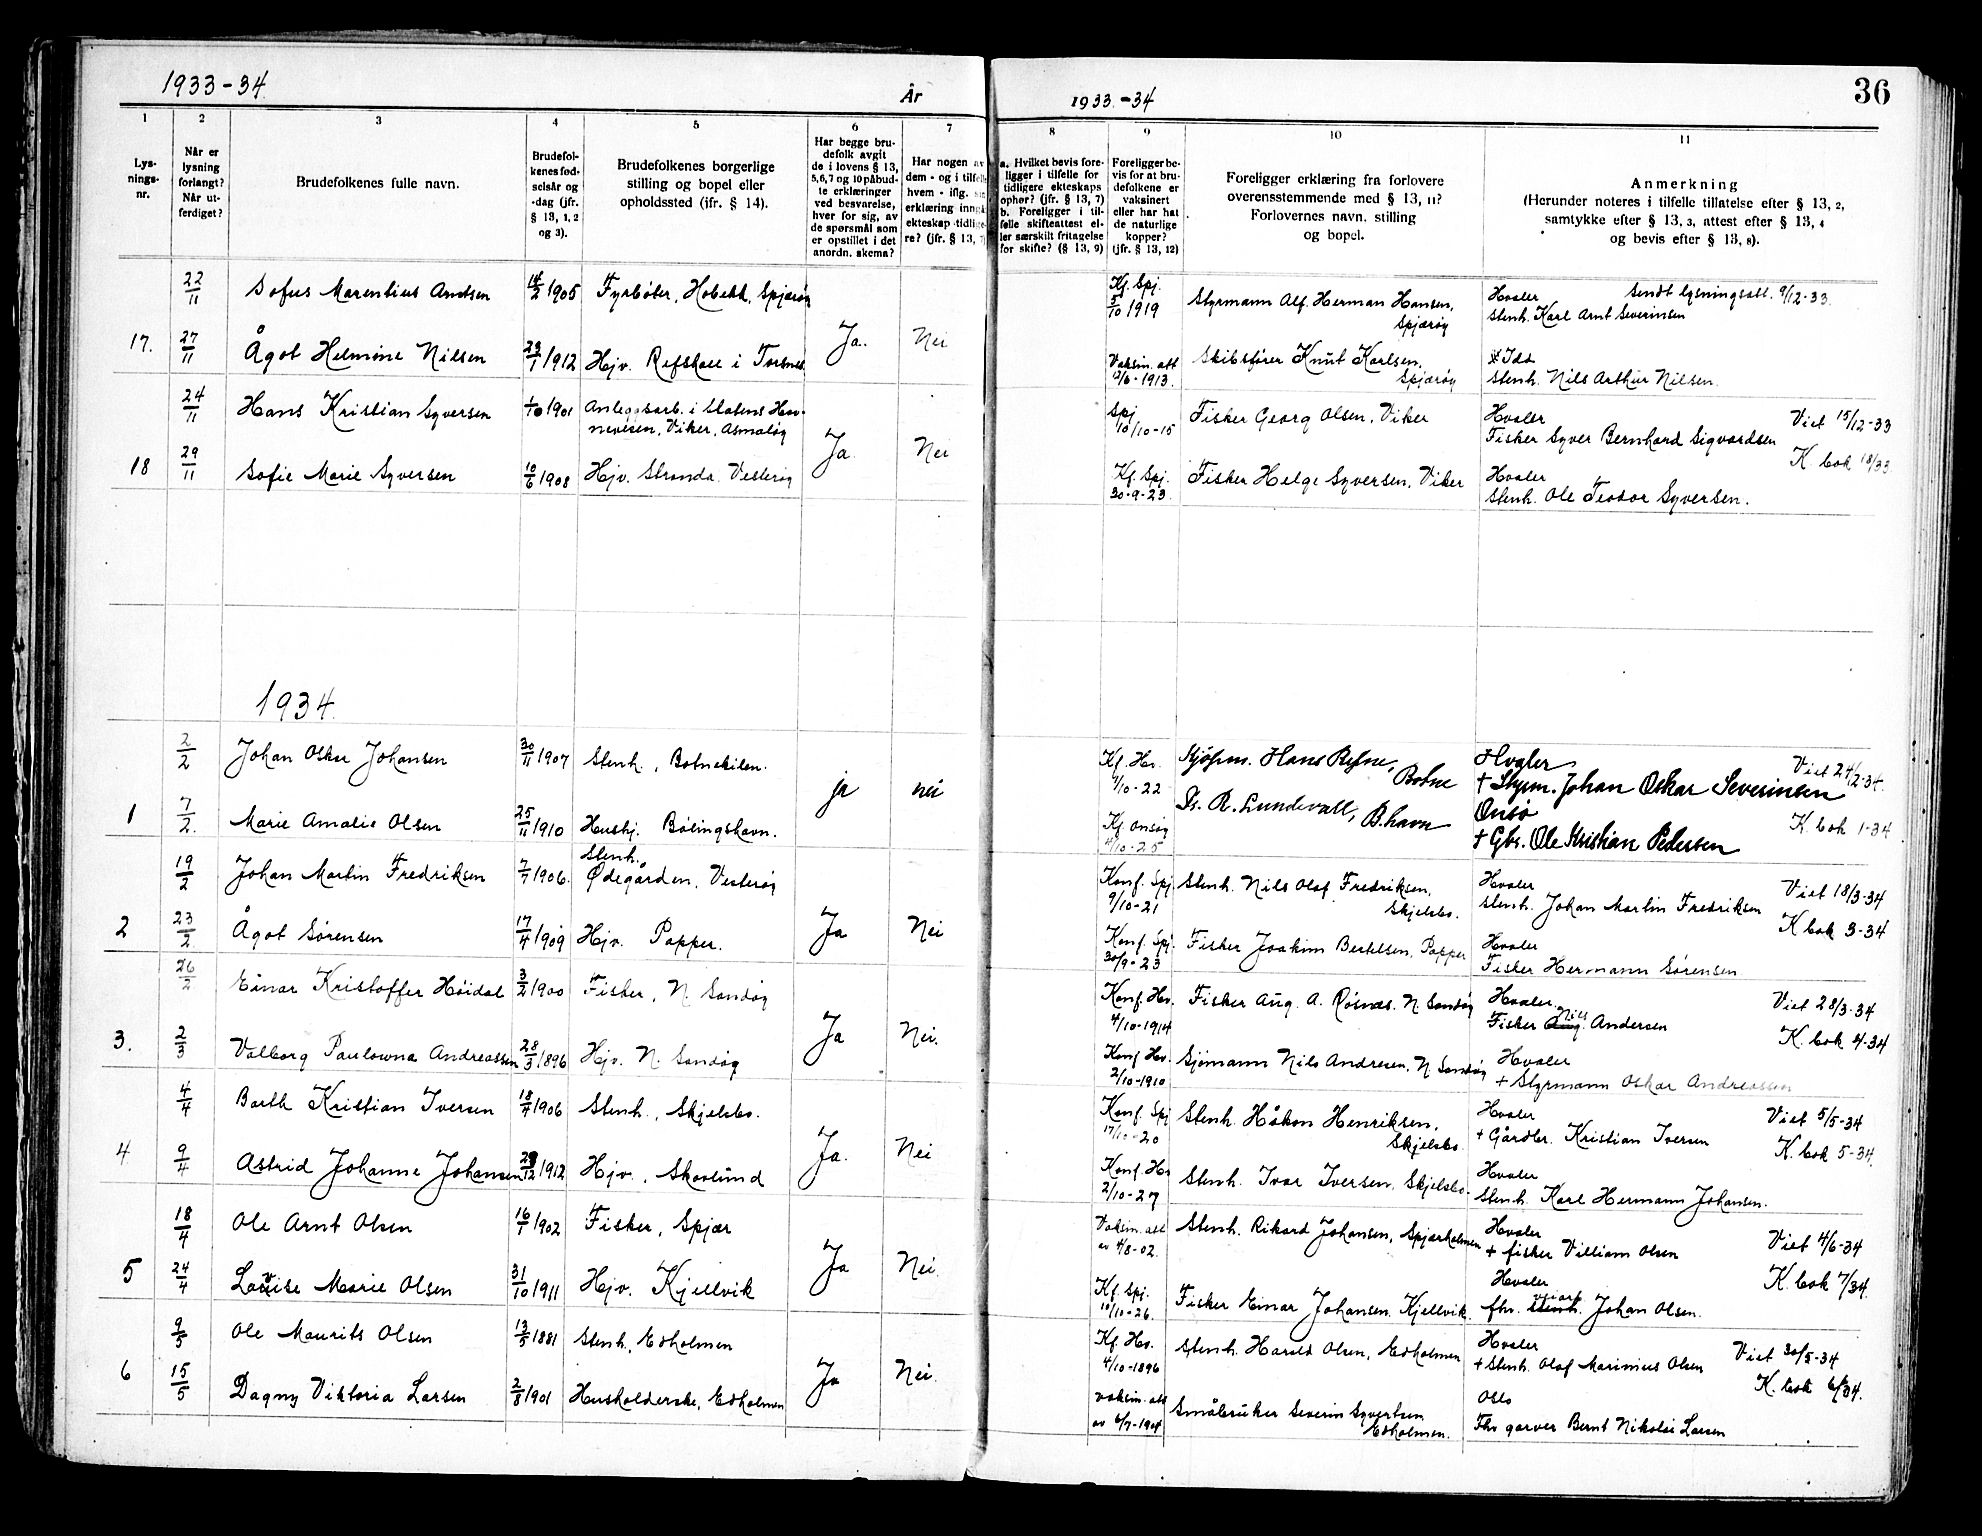 1933-34
År
1933-34
36
1
2
3
4
5
6
7
8
9
10
11
Lys-
nings-
nr.
Når er
lysning
forlangt?
Når ut-
ferdiget?
Brudefolkenes fulle navn.
Brudefol-
kenes fød-
selsår og
-dag (jfr.
§ 13, 1, 2
og 3).
Brudefolkenes borgerlige
stilling og bopel eller
opholdssted (jfr. § 14).
Har begge bru-
defolk avgit
de i lovens § 13,
5,6,7 og 10 påbud-
te erklæringer
ved besvarelse,
hver for sig, av
de spørsmål som
er opstillet i det
anordn. skema?
Har nogen av
dem - og i tilfelle
hvem - iflg. sin
erklæring inngått
ekteskap tidlige-
re? (jfr. § 13, 7)
a. Hvilket bevis fore-
ligger i tilfelle for
tidligere ekteskaps
ophør? (jfr. § 13, 7)
b. Foreligger i til-
felle skifteattest el-
ler særskilt fritagelse
for skifte? (§ 13, 9)
Foreligger be-
vis for at bru-
defolkene er
vaksinert
eller har hat
de naturlige
kopper?
(jfr. § 13, 12)
Foreligger erklæring fra forlovere
overensstemmende med § 13, 11?
Forlovernes navn, stilling
og bopel.
Anmerkning
(Herunder noteres i tilfelle tillatelse efter § 13, 2,
samtykke efter § 13, 3, attest efter § 13, 4
og bevis efter § 13, 8).
22/11 Sofus Marentius Arntsen 14/2 1905 Fyrbøter, Hobekk, Spjærøy
Kf. Spj. 5/10 1919 Styrmann Alf. Herman Hansen, Spjærøy
Hvaler Sendt lysningsatt. 9/12-33.
Stenh. Karl Arnt Severinsen
17. 27/11 Ågot Helmine Nilsen 23/1 1912 Hjv. Refskou i Torsnes Ja. Nei
Vaksin. att 12/6-1913. Skibsfører Knut Karlsen, Spjærøy
Idd
Stenh. Nils Arthur Nilsen.
24/11 Hans Kristian Syversen 1/10 1901 Anleggsarb. i Statens Hav-
nevesen, Viker, Asmaløy
Spj 10/10-15 Fisker Georg Olsen, Viker
Hvaler Viet 15/12-33
Fisker Syver Bernhard Sigvardsen
18 29/11 Sofie Marie Syversen 10/6 1908 Hjv. Stranda. Vesterøy Ja. Nei
Kf. Spj. 30-9-23 Fisker Helge Syversen, Viker
K. bok 18/33.
Hvaler
Stenh. Ole Teodor Syversen.
1934.
2/2 Johan Oskar Johansen 30/11 1907 Stenh., Botnekilen.
Kf. Hv. 1/10-22 Skjøpm. Hans Refne, Botne
Hvaler Viet 24/2-34.
+ Skpm. Johan Oskar Severinsen
1 7/2. Marie Amalie Olsen 25/11 1910 Hushj. Bølingshavn. ja nei
Kf. Onsøy 4/10-25 R. Lundevall, B.havn
Onsø K. bok 1-34
+ Gbr. Ole Kristian Pedersen
19/2 Johan Martin Fredriksen 7/7 1906. Stenh.
Ødegården, Vesterøy
Konf. Spj 9/10-21 Stenh. Nils Olaf Fredriksen, Skjelsbo.
Hvaler Viet 18/3-34
Stenh. Johan Martin Fredriksen
2 23/2 Ågot Sørensen 17/4 1909 Hjv. Papper. Ja Nei
Konf. Spj. 30/9-23 Fisker Joakim Bertelsen, Papper
Hvaler K bok 3-34
Fisker Hermann Sørensen
26/2 Einar Kristoffer Høidal 3/2 1900 Fisker, N. Sandøy
Konf. Hv. 4/10-1914 Fisker Aug. A. Røsnæs. N. Sandøy
Hvaler. Viet 28/3-34
Fisker Nils Andersen
3. 2/3 Valborg Paulowna Andreassen 28/3 1896 Hjv. N. Sandøy Ja Nei.
Konf Hv. 2/10-1910 Sjømann Nils Andresen, N Sandøy
K. bok 4-34
Hvaler
+ Styrmann Oskar Andreassen
4/4 Barth Kristian Iversen 18/4 1906 Stenh., Skjelsbo.
Konf. Spj 17/10-20 Stenh. Håkon Henriksen, Skjelsbo
Hvaler Viet 5/5-34
+ Gårdbr. Kristian Iversen
4 9/4 Astrid Johanne Johansen 29/12 1912 Hjv., Skovlund Ja. Nei
Konf. Hv 2/10-27 Stenh. Ivar Iversen, Skjelsbo.
K. bok 5-34.
Hvaler
Stenh. Karl Hermann Johansen.
18/4 Ole Arnt Olsen 16/1 1902 Fisker, Spjær
Vaksin. att av 4/8-02. Stenh. Rikard Johansen, Spjærholmen
Hvaler Viet 4/6-34
+ fisker Villiam Olsen
5 24/4 Lovise Marie Olsen 31/10 1911 Hjv. Kjellvik Ja Nei.
Kf. Spj. 10/10-26. Fisker Einar Johansen, Kjellvik.
Hvaler K. bok 7/34.
fhv. Johan Olsen.
9/5 Ole Maurits Olsen 13/5 1881 Stenh., Edholmen
Kf. Hv. 4/10-1896 Stenh. Harald Olsen, Edholmen
Hvaler Viet 30/5-34
+ Stenh. Olaf Marinius Olsen
6 15/5 Dagny Viktoria Larsen 2/8 1901 Husholderske, Edholmen Ja Nei.
vaksin. att av 6/7-1904 Småbruker Severin Syvertsen Edholmen.
K. bok 6/34.
Oslo
Fhv garver Bernt Nikolai Larsen